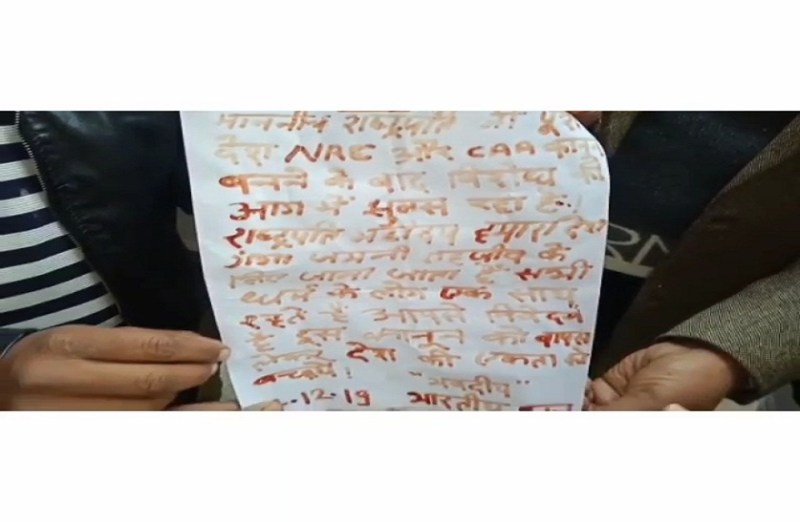 माननीय राष्ट्रपति जी पूरा
देश NRC और CAA कानून
बनने के बाद विरोध की
आग में झुलस रहा है!
राष्ट्रपति महोदय हमारा देश
गंगा जमनी तहजीब के
लिए जाना जाता है सभी
धर्म के लोग एक साथ
रहते हैं आपसे निवेदन
है इस कानून को वापस
लेकर देश की एकता को
बचाइये! "भवदीय"
.12.19 भारतीय